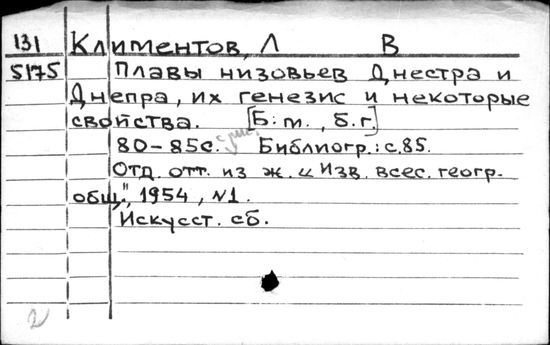 131 Климентов, Л В
5175 Плавы низовьев Днестра и
Днепра, их генезис и некоторые
свойства. [Б. м., б. г.]
80-85с. Библиогр.: с. 85.
Отд. отт. из ж. "Изв. всес. геогр.
общ.", 1954, N1.
Искусст. сб.
2